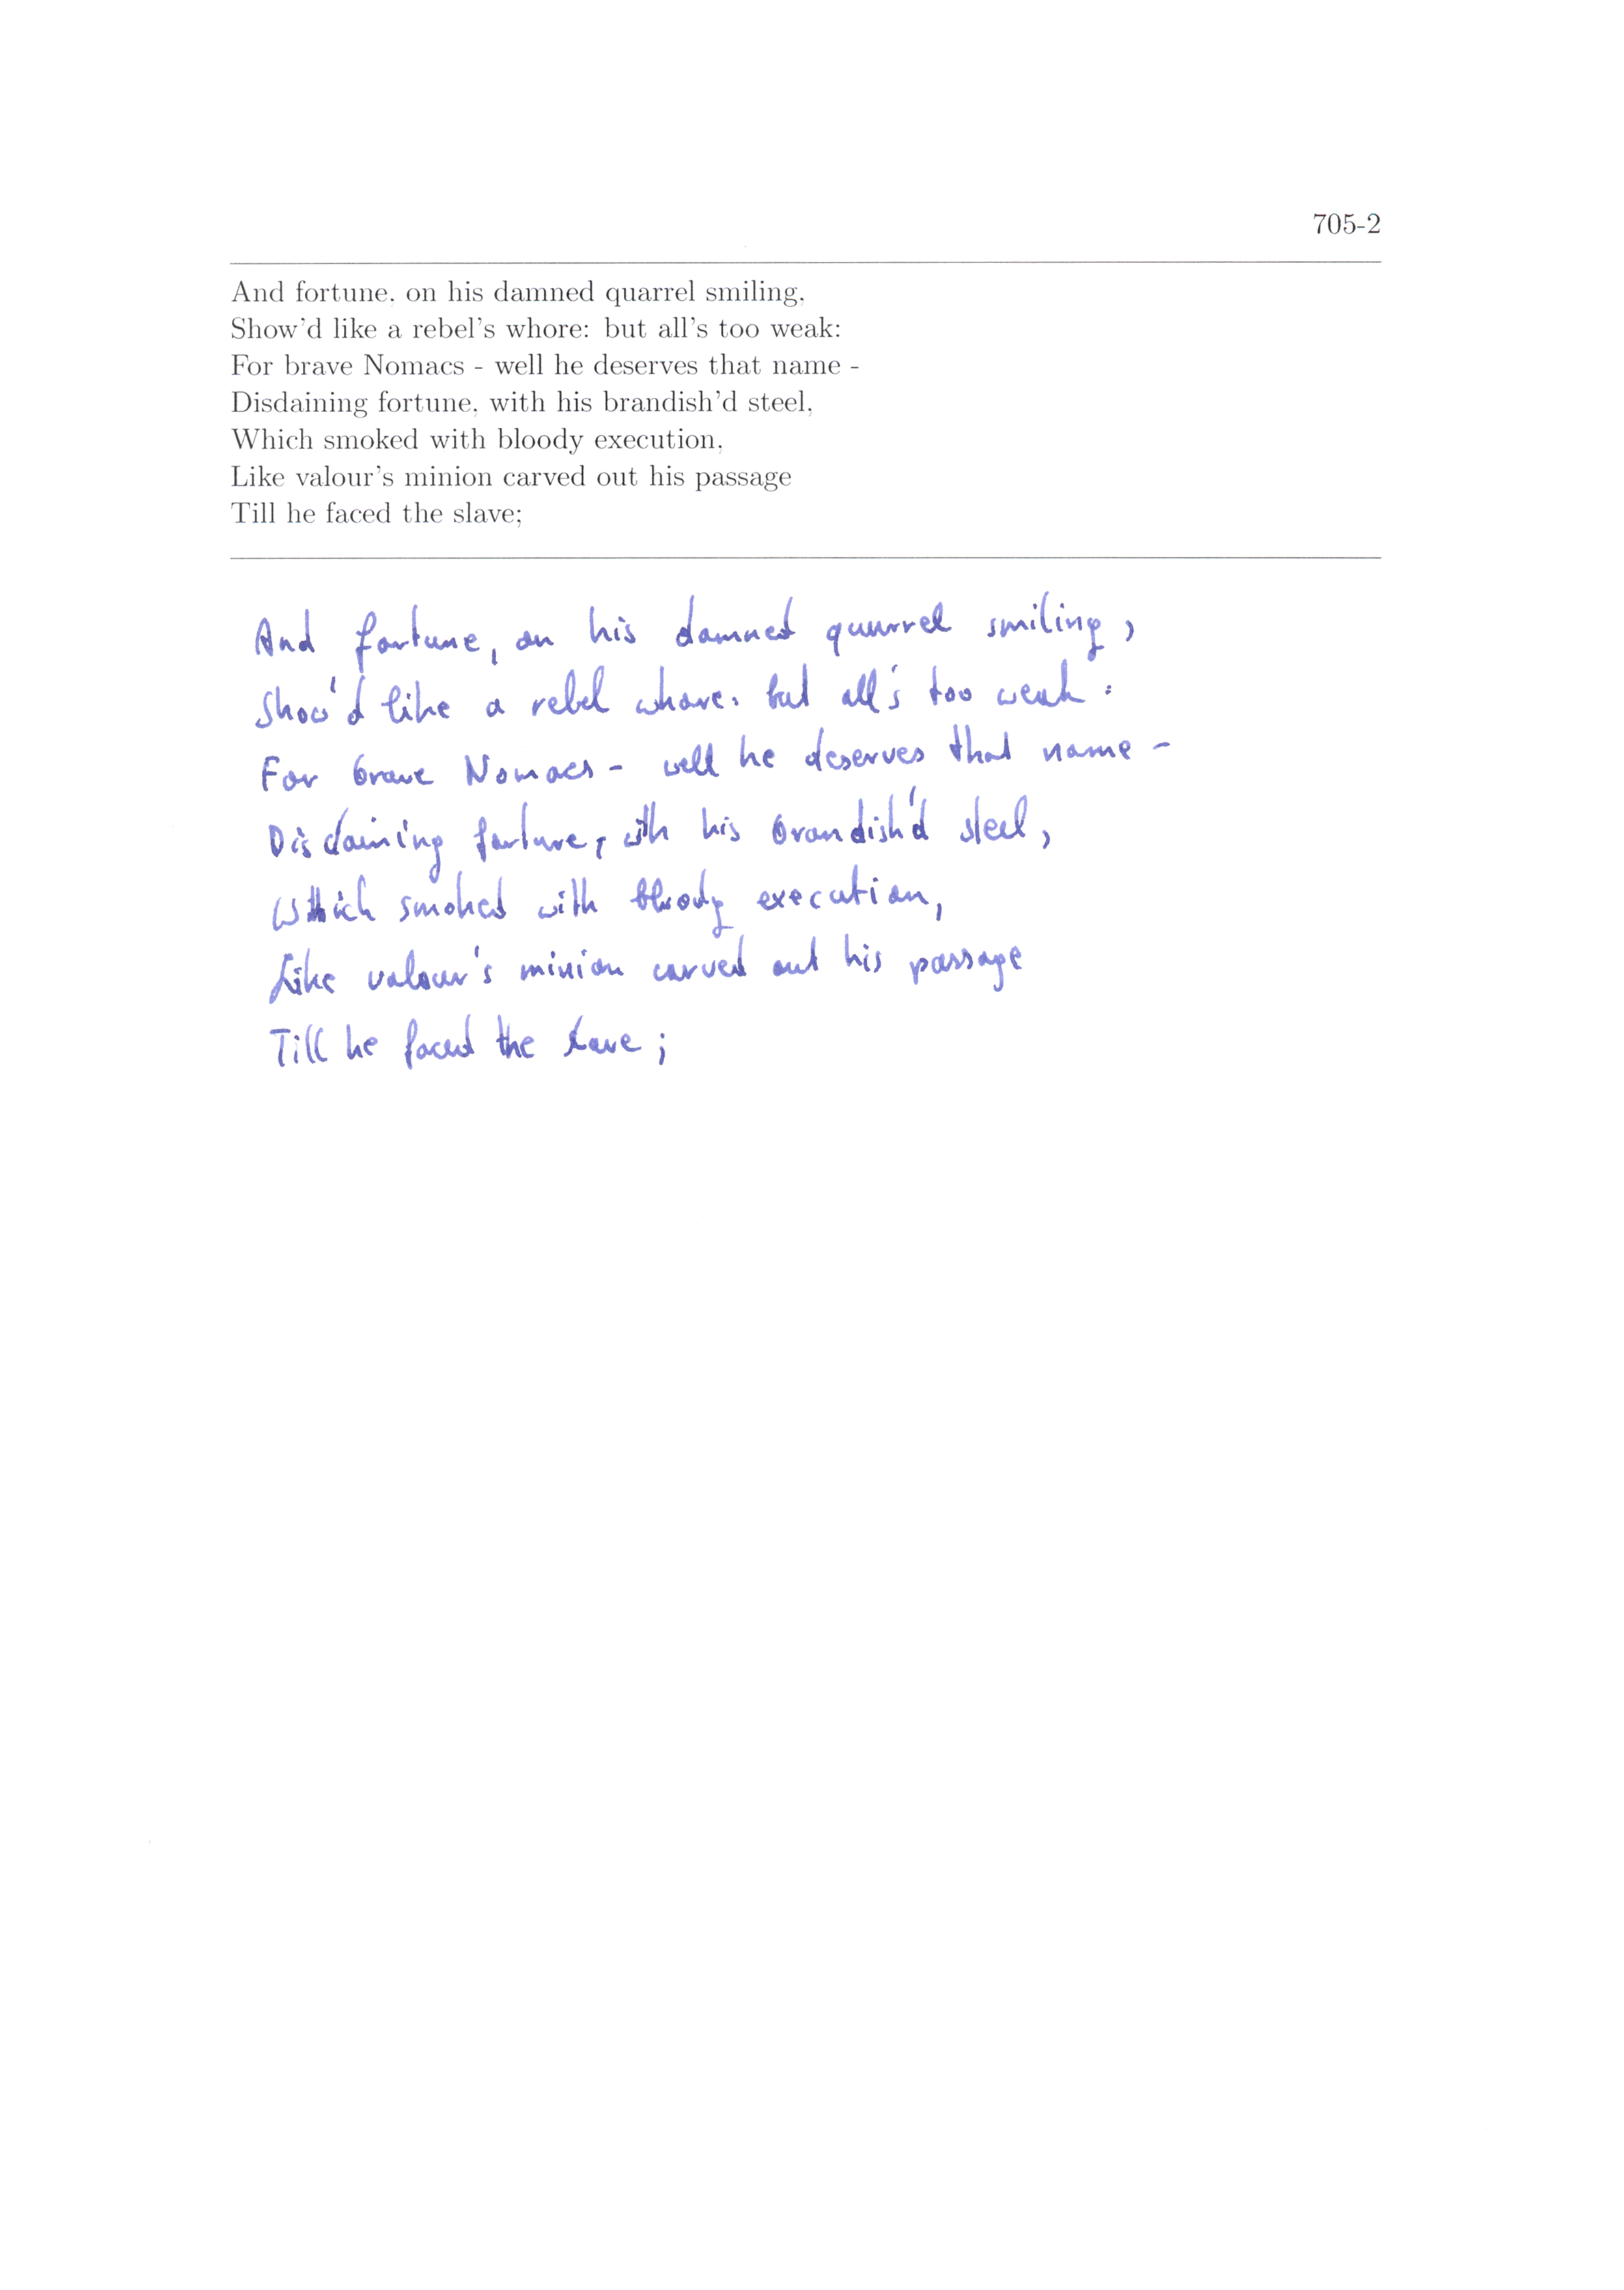 705-2
And fortune, on his damned quarrel smiling,
Show'd like a rebel's whore: but all's too weak:
For brave Nomacs - well he deserves that name -
Disdaining fortune, with his brandish'd steel,
Which smoked with bloody execution,
Like valour's minion carved out his passage
Till he faced the slave;
And fortune, on his damned quarrel smiling,
Show'd like a rebel whore. but all's too weak:
For brave Nomacs - well he deserves that name -
Disdaining fortune, with his brandish'd steel,
Which smoked with bloody execution,
Like valour's minion carved out his passage
Till he faced the slave;